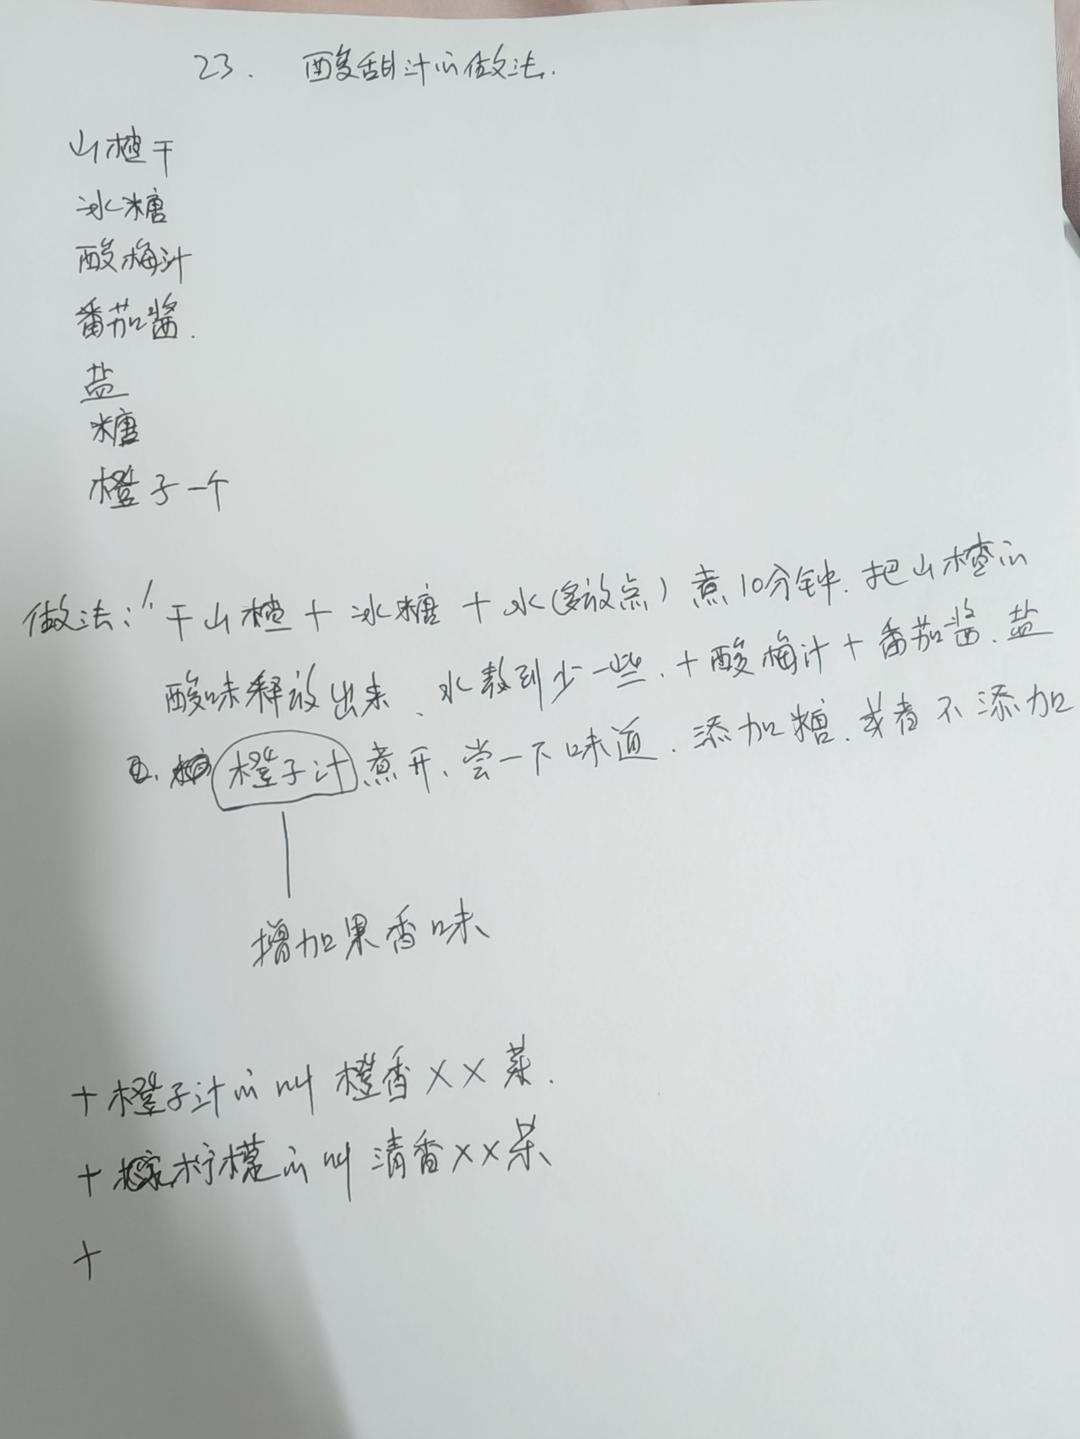 23. 酸甜汁的做法.
山楂干
冰糖
酸梅汁
番茄酱.
盐
糖
橙子一个
做法:1. 干山楂+冰糖+水(多放点)煮10分钟.把山楂的
酸味释放出来、水熬到少一些.+酸梅汁+番茄酱.盐
2. 橙子汁.煮开、尝一下味道.添加糖.或者不添加
增加果香味
+橙子汁的叫 橙香××菜.
+柠檬的叫 清香××菜
+